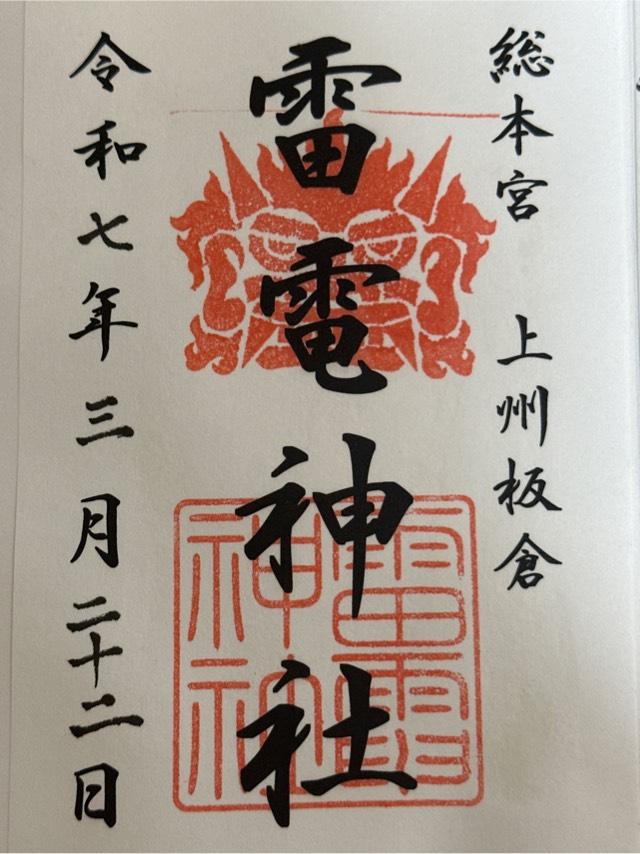 総本宮 上州板倉
雷電神社
令和七年三月二十二日
雷電神社